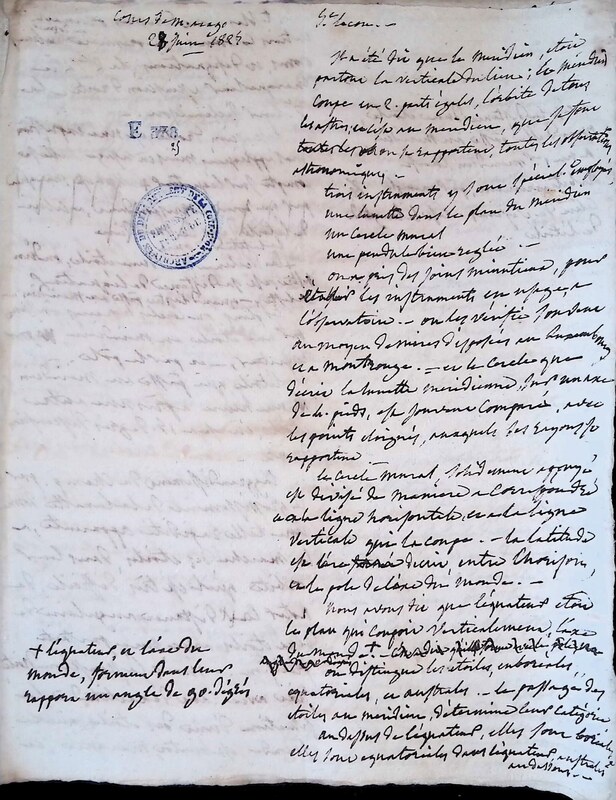 Cours de M. arago
28 juin 1825
5e Lecon. —
E 338
25
Il a été dit que le méridien, étoit
partout la verticale du lieu; le méridien
coupe en 2. parts égales, l'orbite de tous
les astres, et c'est au méridien, que se font
on se rapportent, toutes les observations
astronomiques. —
trois instruments y sont spécial. employés
une lunette dans le plan du méridien
un Cercle mural
une pendule bien reglée. —
on a pris des soins minutieux, pour
établir les instruments en usage, a
l'observatoire. — on les vérifie souvent
au moyen de mires disposées au Luxembourg
et a montrouge. — et le Cercle que
décrit la lunette méridienne, sur un axe
de 4. pieds, est souvent Comparé, avec
les points éloignés, auxquels les rayons se
rapportent
le Cercle mural, solidement appuyé
est divisé de manière a Correspondre
a la ligne horisontale, et a la ligne
verticale qui la coupe. — la latitude
est l'arc décrit, entre l'horison,
et le pole de l'axe du monde. —
Nous avons dit que l'équateur étoit
le plan qui coupoit verticalement, l'axe
du monde +
on distingue les étoiles, en boréales,
équatoriales, et australes. — le passage des
étoiles au méridien, détermine leur catégorie
au dessus de l'équateur, elles sont boréales
elles sont équatoriales dans l'équateur, australes
au dessous. —
+ l'équateur, et l'axe du
monde, forment dans leur
rapport un angle de 90. dégrés